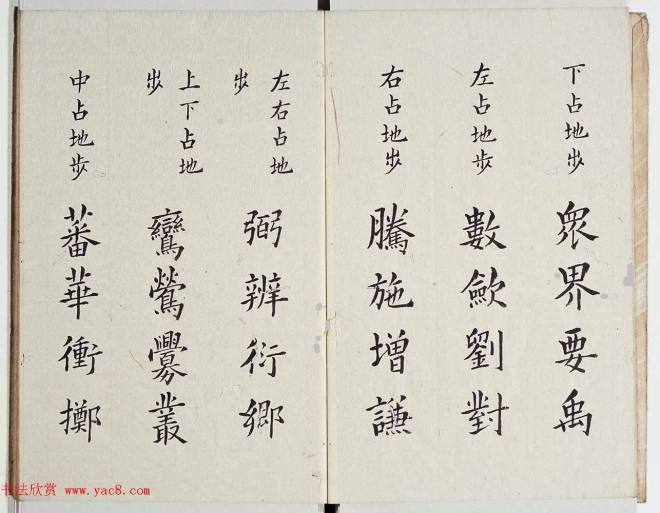 下占地步
眾界要禹
左占地步
數斂劉對
右占地步
騰施增謙
左右占地
步
弼辨衍鄉
上下占地
步
鸞鶯爨叢
中占地步
蕃華衝擲
书法欣赏 www.yac8.com